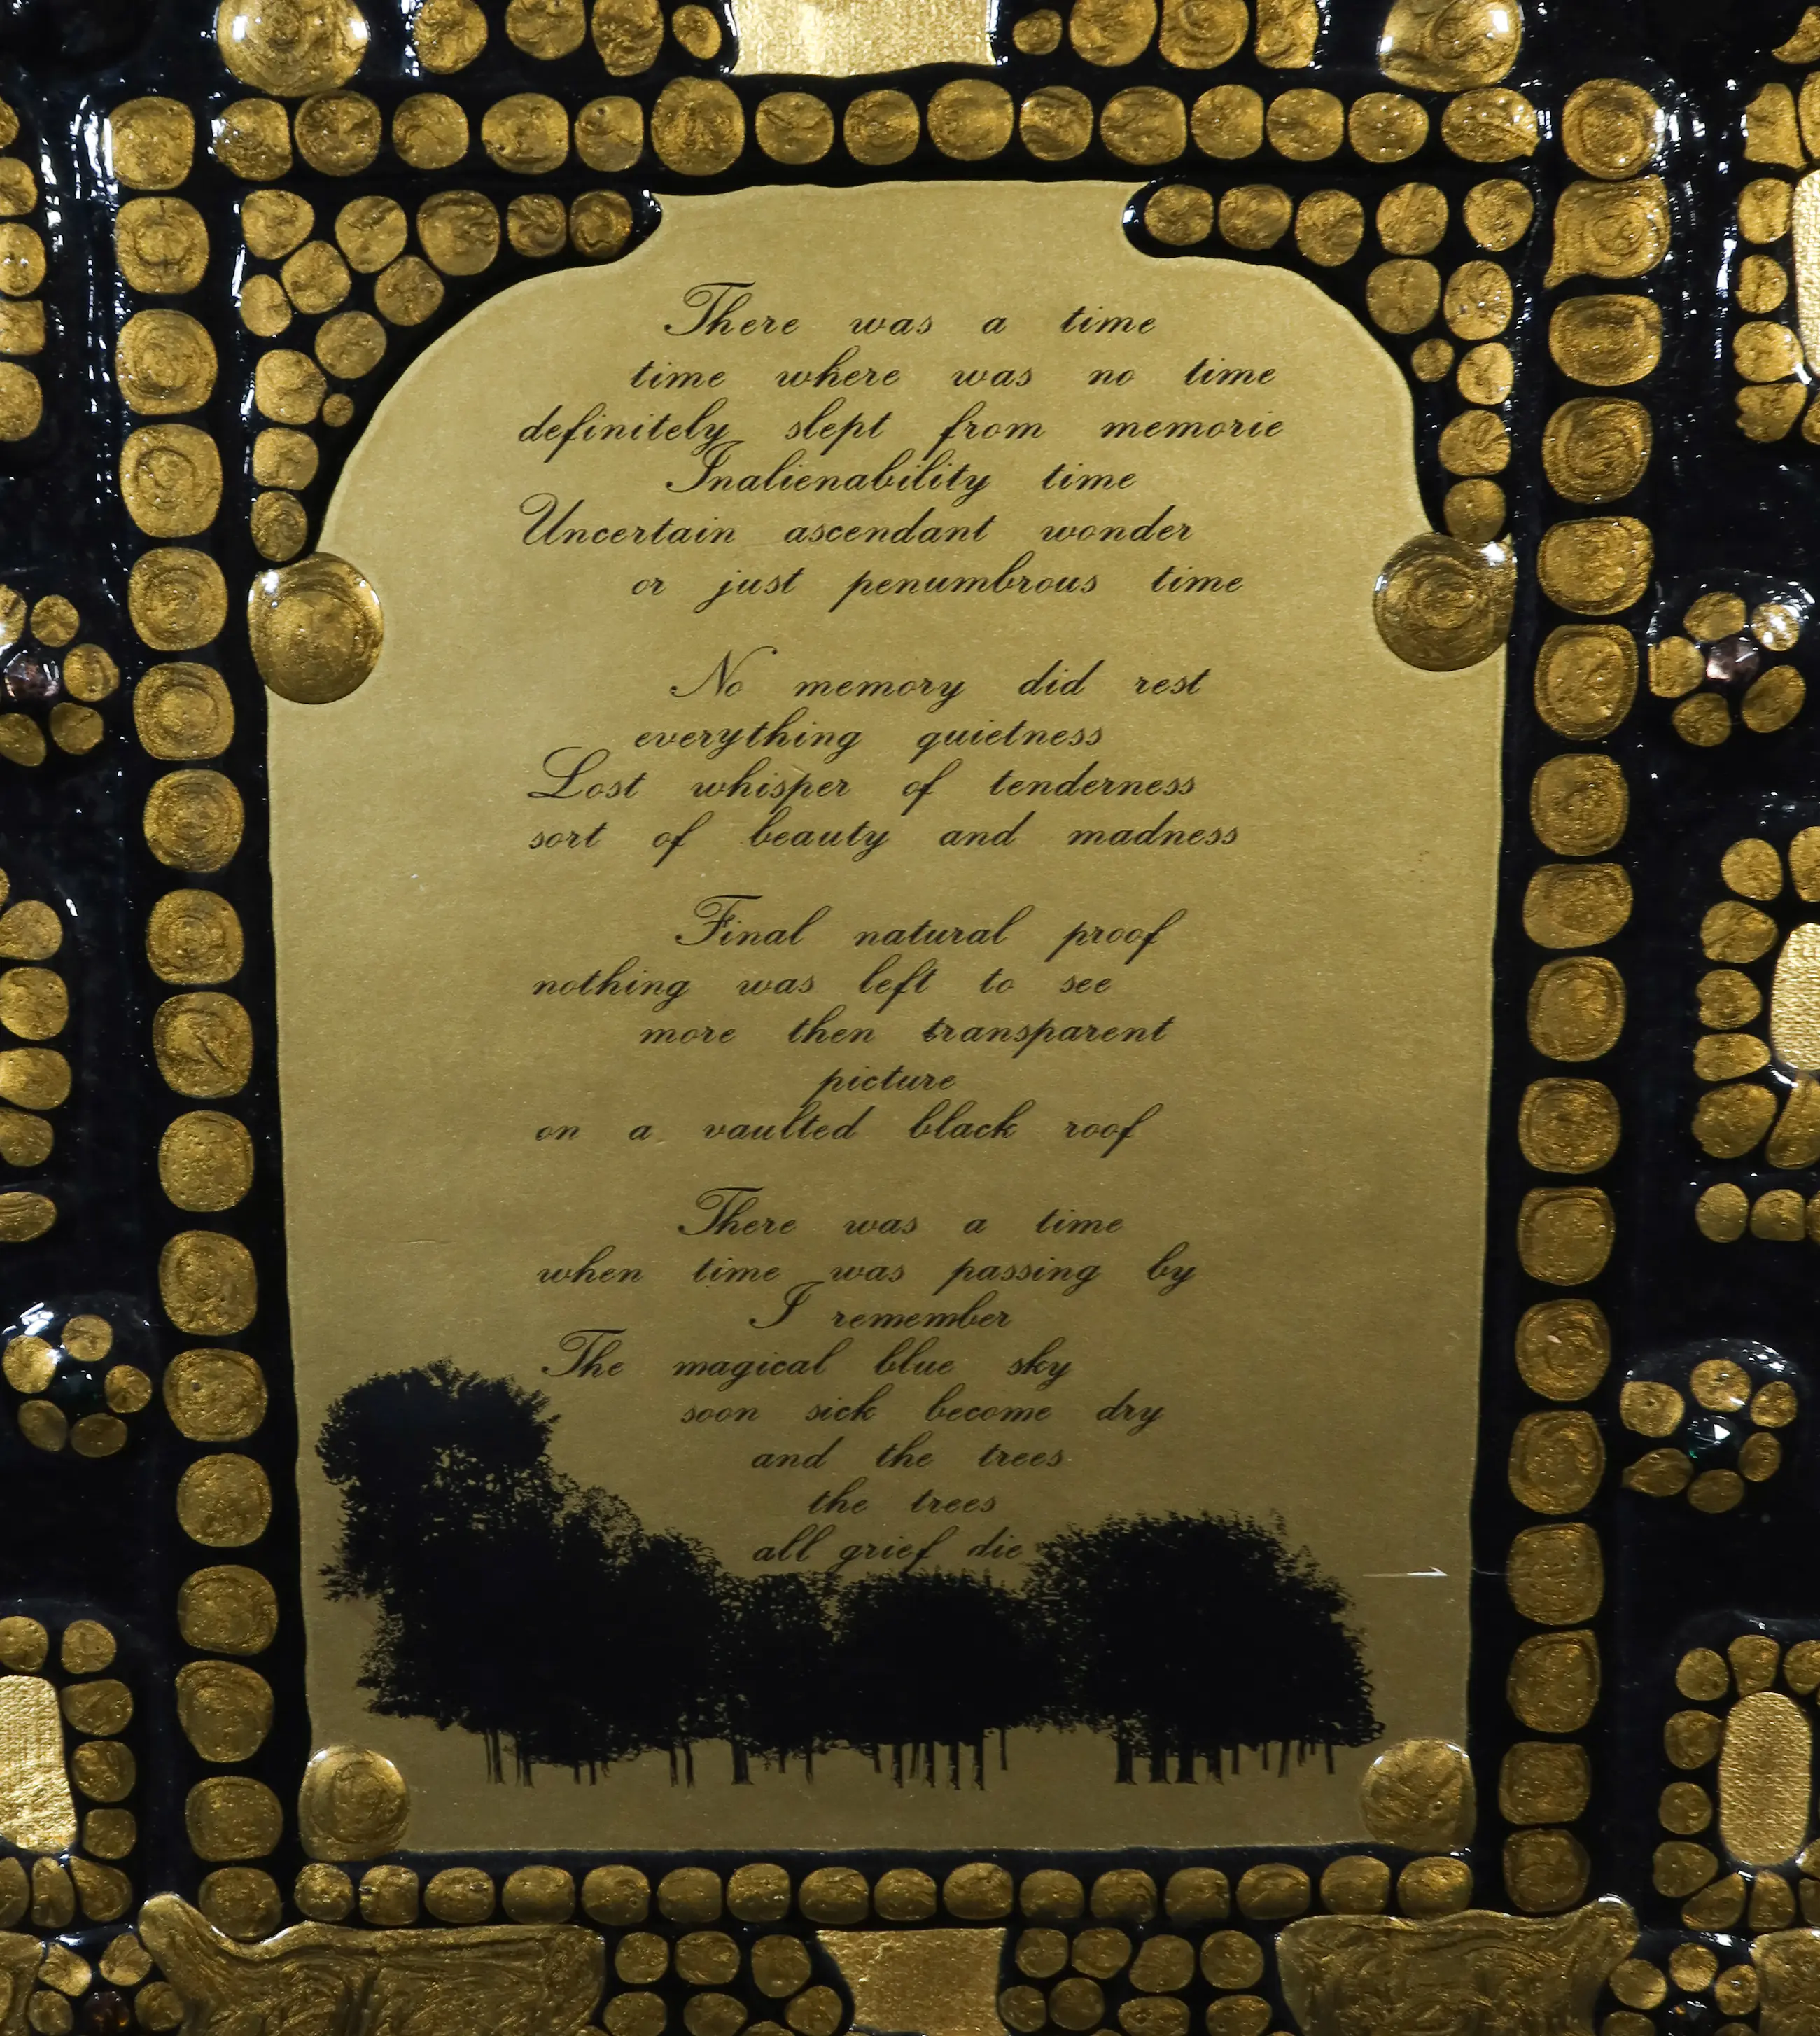 There was a time
time where was no time
definitely slept from memorie
Inalienability time
Uncertain ascendant wonder
or just penumbrous time
No memory did rest
everything quietness
Lost whisper of tenderness
sort of beauty and madness
Final natural proof
nothing was left to see
more then transparent
picture
on a vaulted black roof
There was a time
when time was passing by
I remember
The magical blue sky
soon sick become dry
and the trees
the trees
all grief die